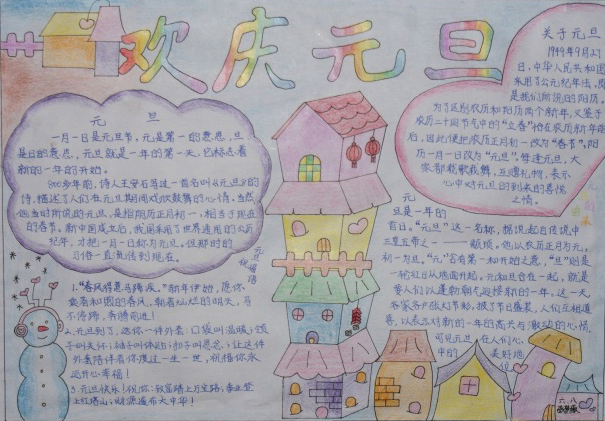 欢庆元旦
元 旦
一月一日是元旦节,元是第一的意思,旦
是日的意思,元旦就是一年的第一天,它标志着
新的一年的开始。
800多年前,诗人王安石等过一首名叫《元旦》的
诗,描述了人们在元旦期间欢欣鼓舞的心情。当然
他当时所说的元旦,是指阴历正月初一,相当于现在
的春节。新中国成立后,我国采用了世界通用的公历
纪年,才把一月一日称为元旦。但那时的
习俗一直流传到现在。
元旦祝福语
1."春风得意马蹄疾,"新年伊始,愿你
乘着和煦的春风,朝着灿烂的明天,马
不停蹄,奔腾前进!
2.元旦到了,送你一件外套:口袋叫温暖;领
子叫关怀;袖子叫体贴;扣子叫思念;让这件
外套陪伴着你渡过一生一世,祝福你永
远开心幸福!
3.元旦快乐!祝你:致富踏上万宝路;事业登
上红塔山;财源遍布大中华!
关于元旦
1949年9月27
日,中华人民共和国
采用了公元纪年法,
是我们所说的阳历,
为了区别农历和阳历两个新年,又鉴于
农历二十四节气中的"立春"恰在农历新年前
后,因此便把农历正月初一改为"春节",阳
历一月一日改为"元旦"。每逢元旦,大
家都载歌载舞,互赠礼物,表示
心中对元旦的到来的喜悦
之情。
元
旦是一年的
首日。"元旦"这一名称,据说起自传说中
三皇五帝之一——颛顼。他以农历正月为元,
初一为旦。"元"含有第一和开始之意,"旦"则是
一轮红日从地面升起。元和旦合在一起,就是
要人们以蓬勃朝气迎接新的一年。这一天
客家各户张灯节彩,披下节日盛装,人们互相道
喜,以表示对新的一年的高兴与激动的心情,
可见元旦在人们心
中的
美好地
位。
六、八